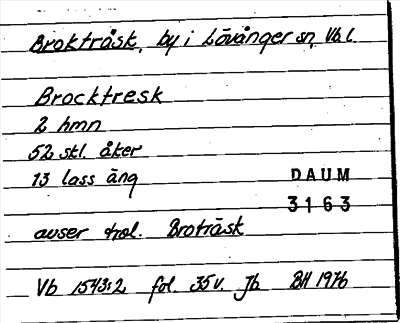 Brokträsk, by i Lövånger sn, Vb l.
Brocktresk
2 hmn
52 skl. åker
13 lass äng
DAUM
3163
avser trol. Broträsk
Vb 1543:2 fol. 35v. Jb BH 1976